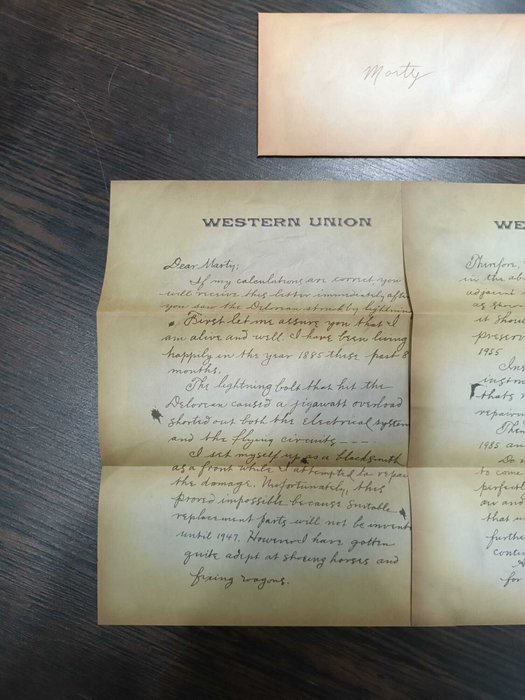 Marty
WESTERN UNION
Dear Marty;
If my calculations are correct, you
will receive this letter immediately after
you saw the Delorean struck by lightning
First let me assure you that I
am alive and well. I have been living
happily in the year 1885 these past 8
months.
The lightning bolt that hit the
Delorean caused a jigawatt overload
shorted out both the electrical system
and the flying circuits ----
I set myself up as a blacksmith
as a front while I attempted to repai
the damage. Unfortunately, this
proved impossible because suitable
replacement parts will not be invent
until 1947. However I have gotten
quite adept at shoeing horses and
fixing wagons.
WE
Therefore,
in the ab
adjacent
as show
it shoul
preserv
1955
Ins
instru
that's
repairin
Then
1885 an
Do n
to come
perfectly
air and
that u
furthe
conti
for